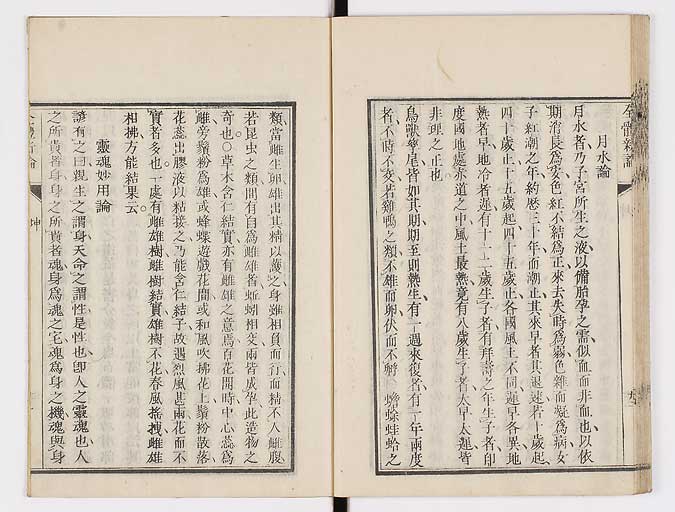 全體新論
月水論
月水者乃子宮所生之液以備胎孕之需似血而非血也以依
期消長爲安色紅不結爲正來去失時爲弱色雜而凝爲病女
子紅潮之年約歷三十年而潮止其來早者其退速若十歲起
四十歲止十五歲起四十五歲止各國風土不同遲早各異地
熱者早地冷者遲有十一二歲生子者有拜壽之年生子者印
度國地處赤道之中風土最熱竟有八歲生子者太早太遲皆
非理之正也
鳥獸孳尾皆如其期期至則熱生有一週來復者有一年兩度
者不時不交若雞鴨之類不雄而卵伏而不孵蟾蜍蛙蛤之
類當雌生卵雄出其精以護之身雖相負而行而精不入雌腹
若昆虫之類間有自爲雌雄者蚯蚓相交兩皆成孕此造物之
奇也○草木含仁結實亦有雌雄之意焉百花開時中心蕊爲
雌旁鬚粉爲雄或蜂蝶遊戲花間或和風吹拂花上鬚粉散落
花蕊出膠液以粘接之乃能含仁結子故遇烈風甚雨花而不
實者多也一處有雌雄樹雌樹結實雄樹不花春風搖拽雌雄
相拂方能結果云
靈魂妙用論
諺有之曰親生之謂身天命之謂性是性也卽人之靈魂也人
之所貴者身身之所貴者魂身爲魂之宅魂爲身之機魂與身
坤